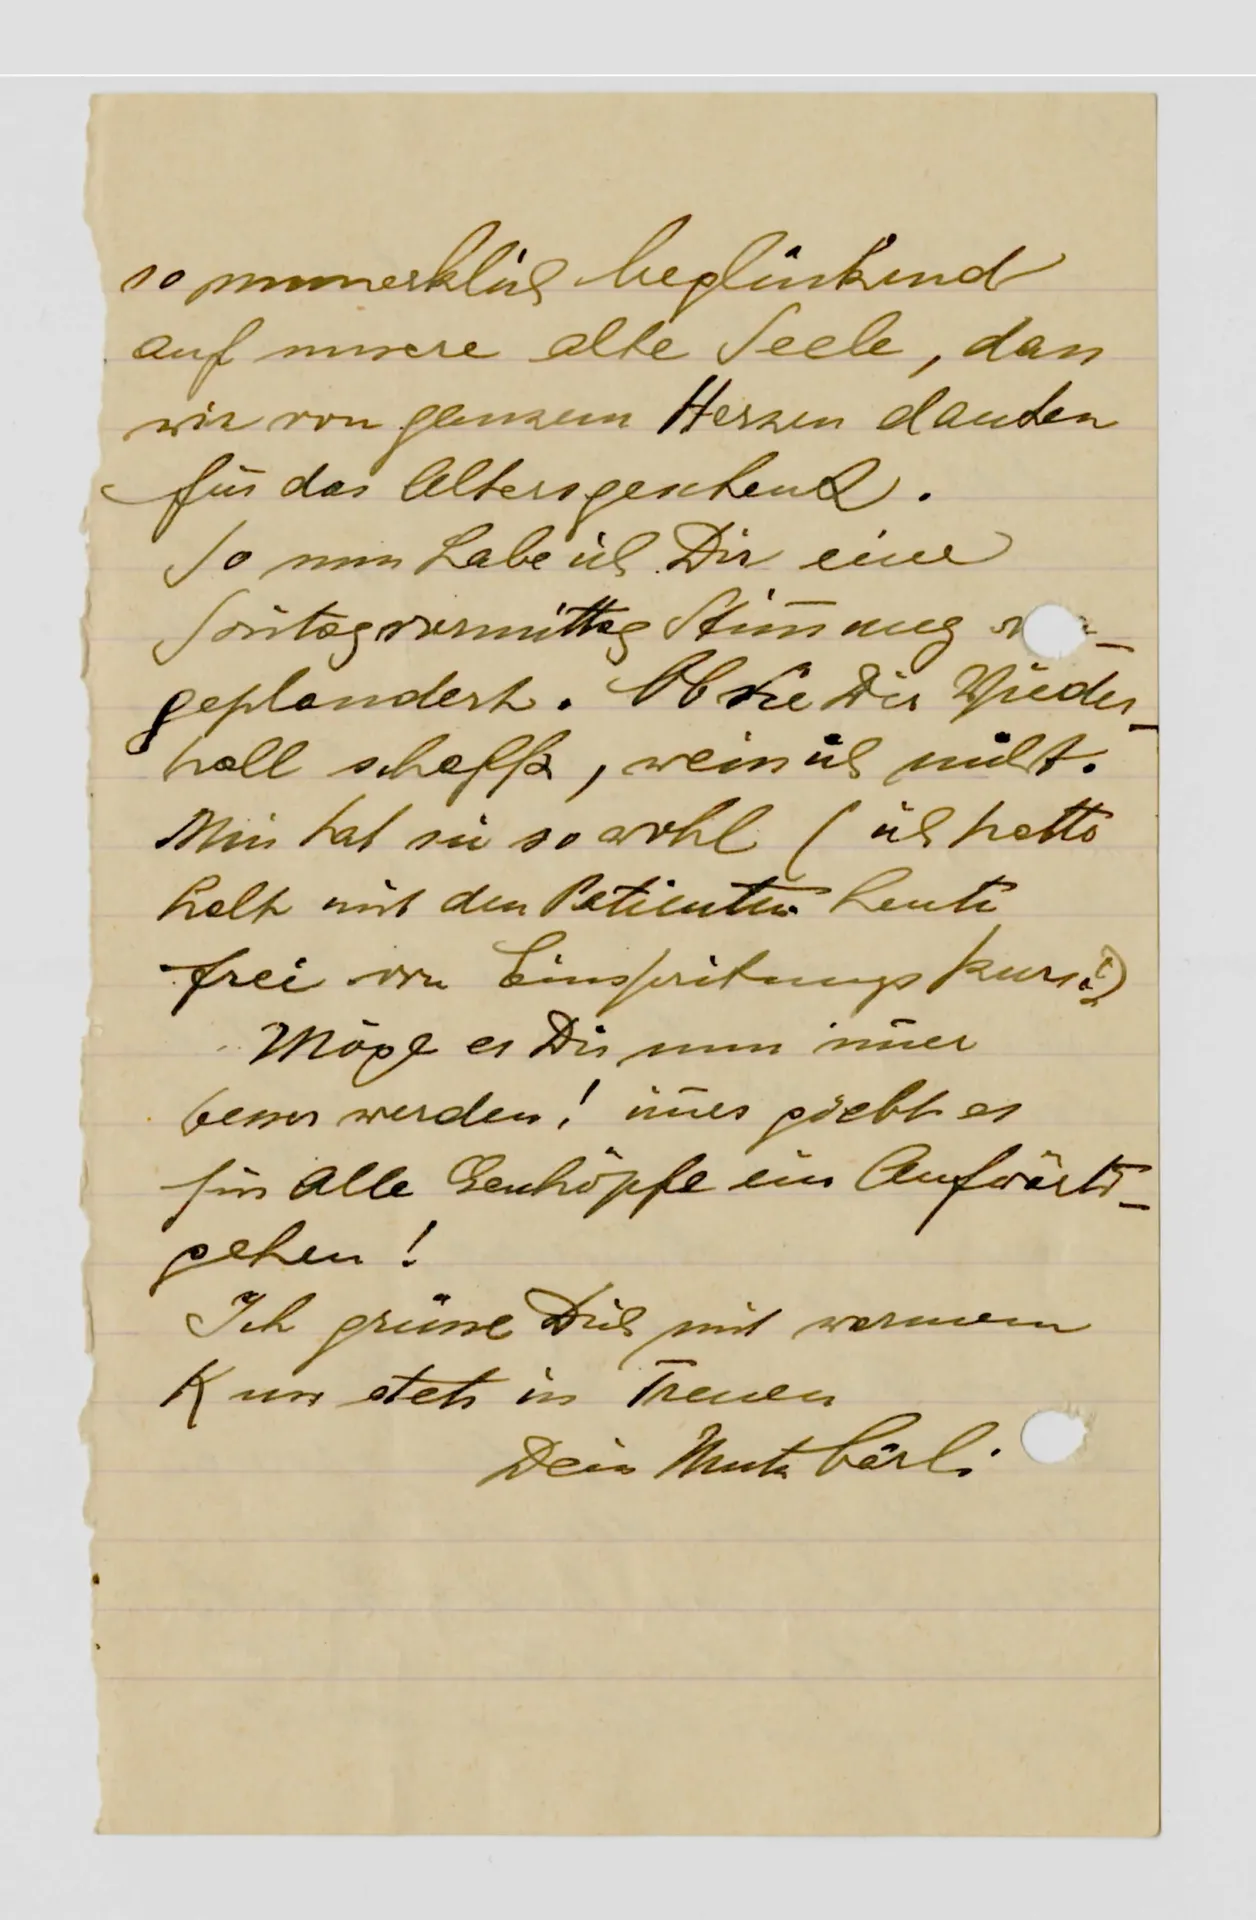 so unmerklich beglückend
auf unsere alte Seele, dass
wir von ganzem Herzen danken
für das Altersgeschenk.
So nun habe ich Dir eine
Son̄tagvormittag Stim̄ung
geplaudert. Ob sie Dir Wieder-
hall schafft, weiss ich nicht.
Mir hat sie so wohl (ich hatte
halt mit den Patienten heute
frei von Einspritzungskurs!)
Möge es Dir nun im̄er
besser werden! im̄er giebt es
für alle Geschöpfe ein Aufwärts-
gehen!
Ich grüsse Dich mit warmem
Kuss stets in Treuen
Dein Mutz bärli